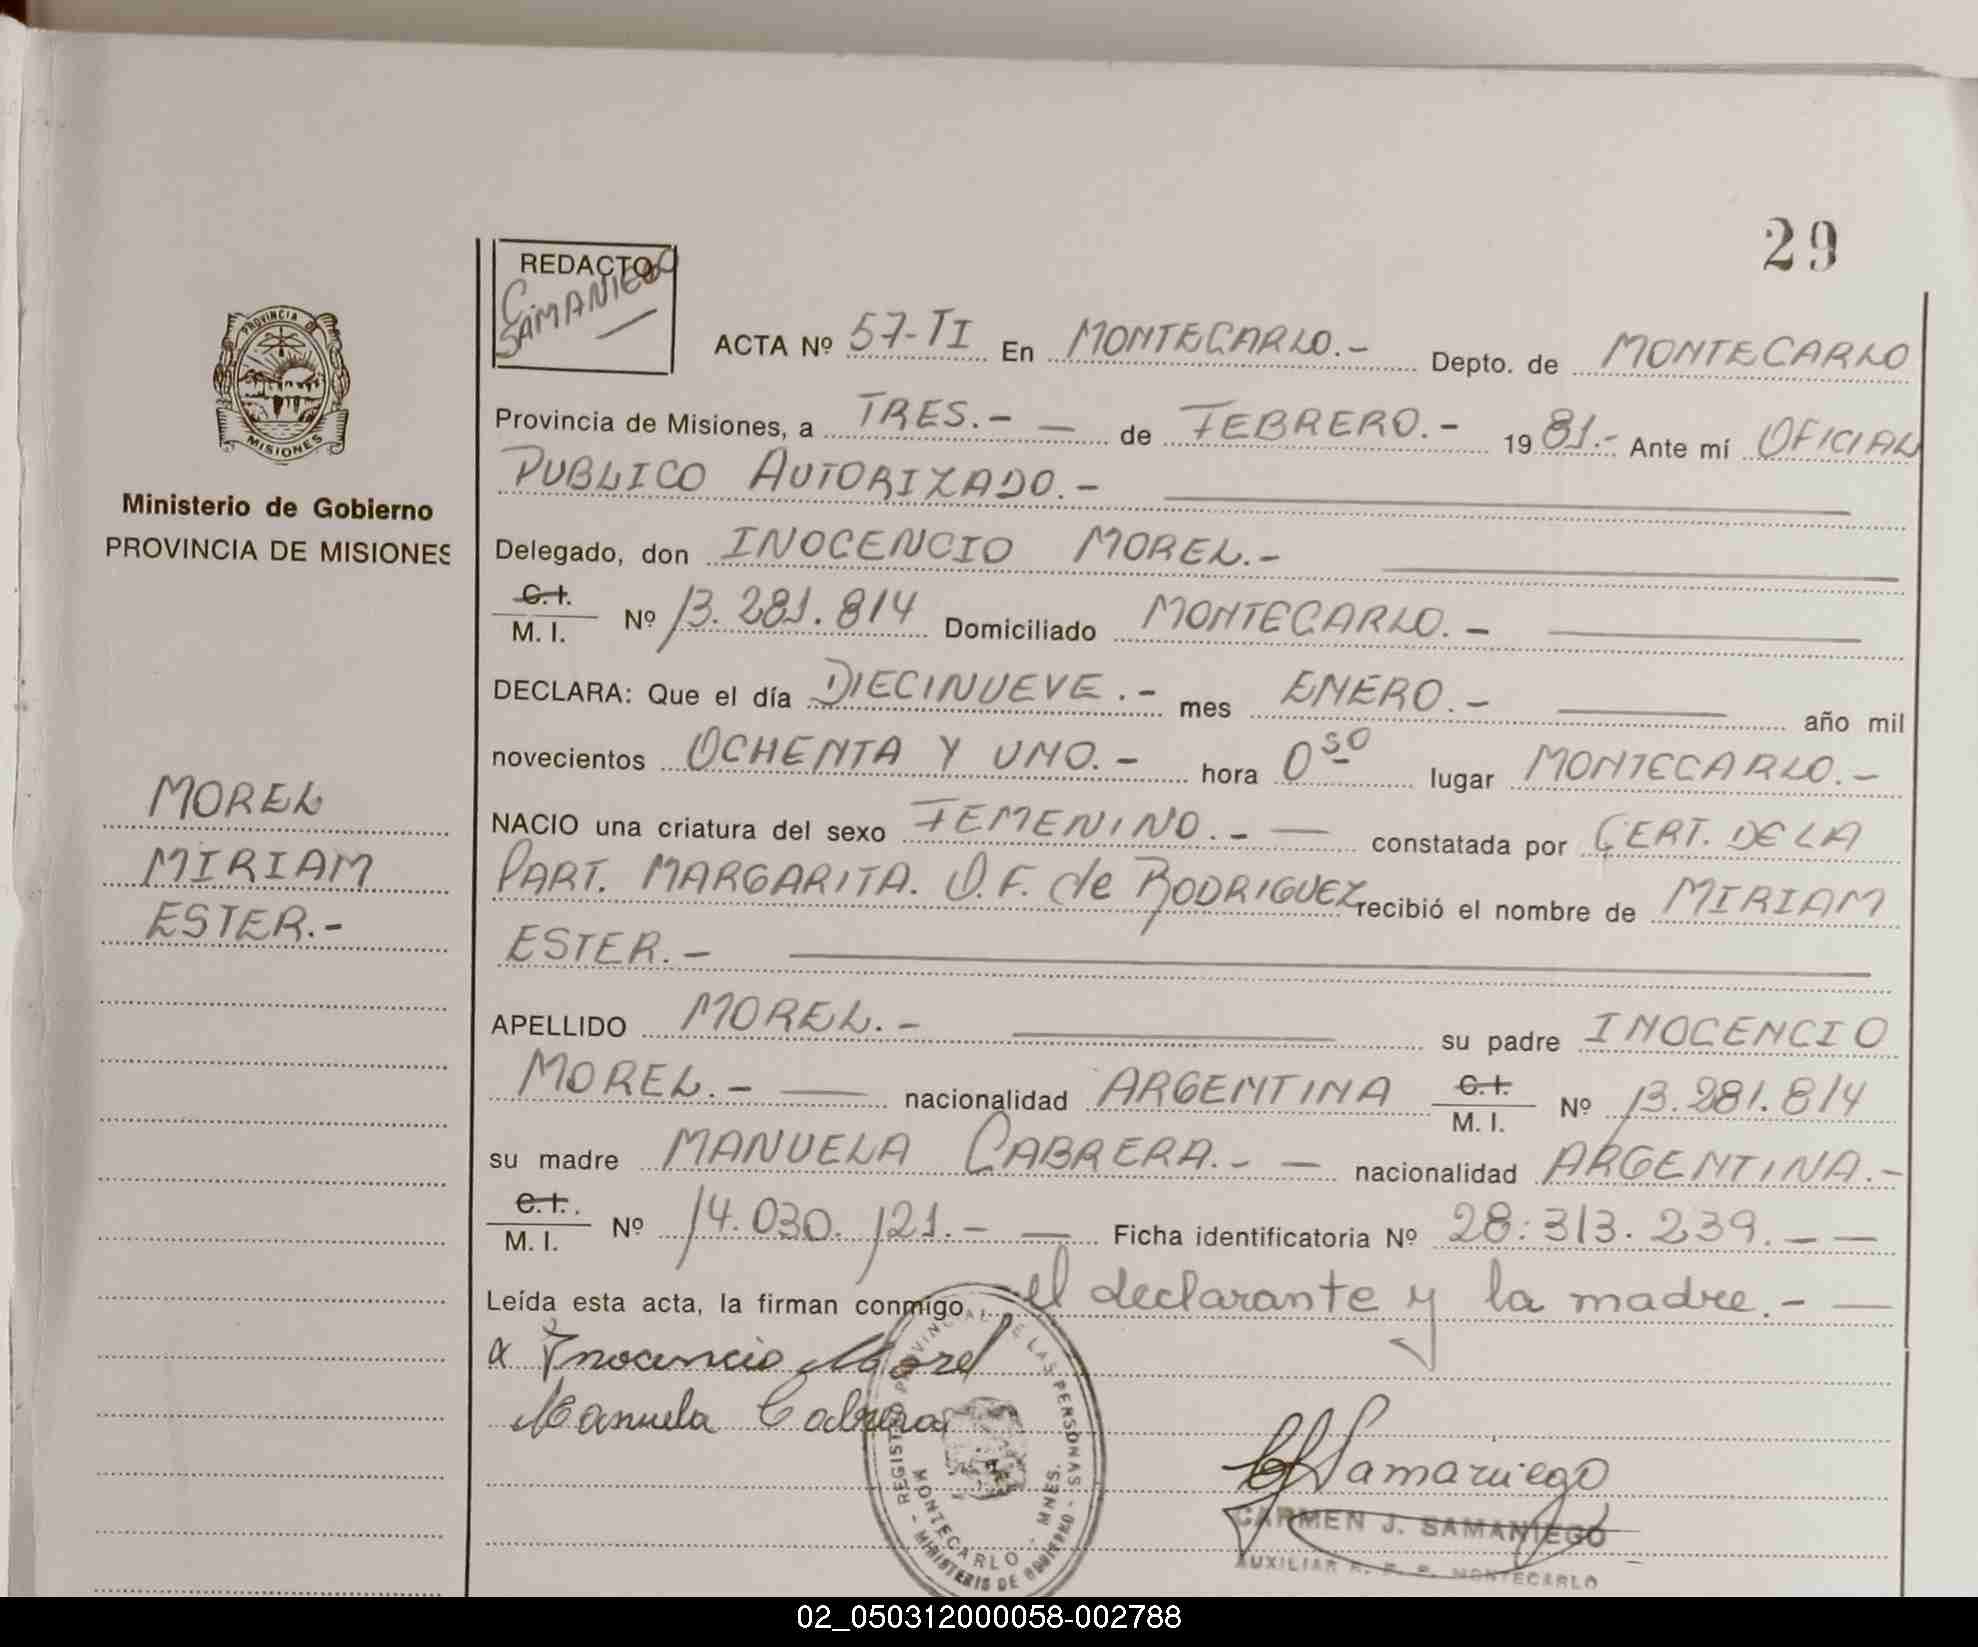 29
REDACTO
C. SAMANIEGO
PROVINCIA DE
MISIONES
ACTA Nº 57-TI En MONTECARLO.- Depto. de MONTECARLO
Provincia de Misiones, a TRES.- — de FEBRERO.- 1981.- Ante mí OFICIAL
PUBLICO AUTORIZADO.-
Ministerio de Gobierno
PROVINCIA DE MISIONES
Delegado, don INOCENCIO MOREL.-
C.I.
M. I. Nº 13.281.814 Domiciliado MONTECARLO.-
DECLARA: Que el día DIECINUEVE.- mes ENERO.- año mil
novecientos OCHENTA Y UNO.- hora 0 50 lugar MONTECARLO.-
MOREL
MIRIAM
ESTER.-
NACIO una criatura del sexo FEMENINO.- — constatada por CERT. DE LA
PART. MARGARITA. O. F. de RODRIGUEZ recibió el nombre de MIRIAM
ESTER.-
APELLIDO MOREL.- su padre INOCENCIO
MOREL.- — nacionalidad ARGENTINA C.I. M. I. Nº 13.281.814
su madre MANUELA CABRERA.- — nacionalidad ARGENTINA.-
C.I. M. I. Nº 14.030.121.- — Ficha identificatoria Nº 28:313.239.- —
Leída esta acta, la firman conmigo el declarante y la madre.- —
x Inocencio Morel
Manuela Cabrera
REGISTRO PROVINCIAL DE LAS PERSONAS -
MONTECARLO - MNES.
- MINISTERIO DE GOBIERNO -
Samaniego
CARMEN J. SAMANIEGO
AUXILIAR R. P. P. MONTECARLO
02_050312000058-002788